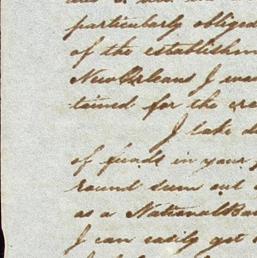 particularly obliged
of the establishm
New Orleans I was
tained for the ere
I take
of funds in your
round sum out
as a National Ba
I can easily get